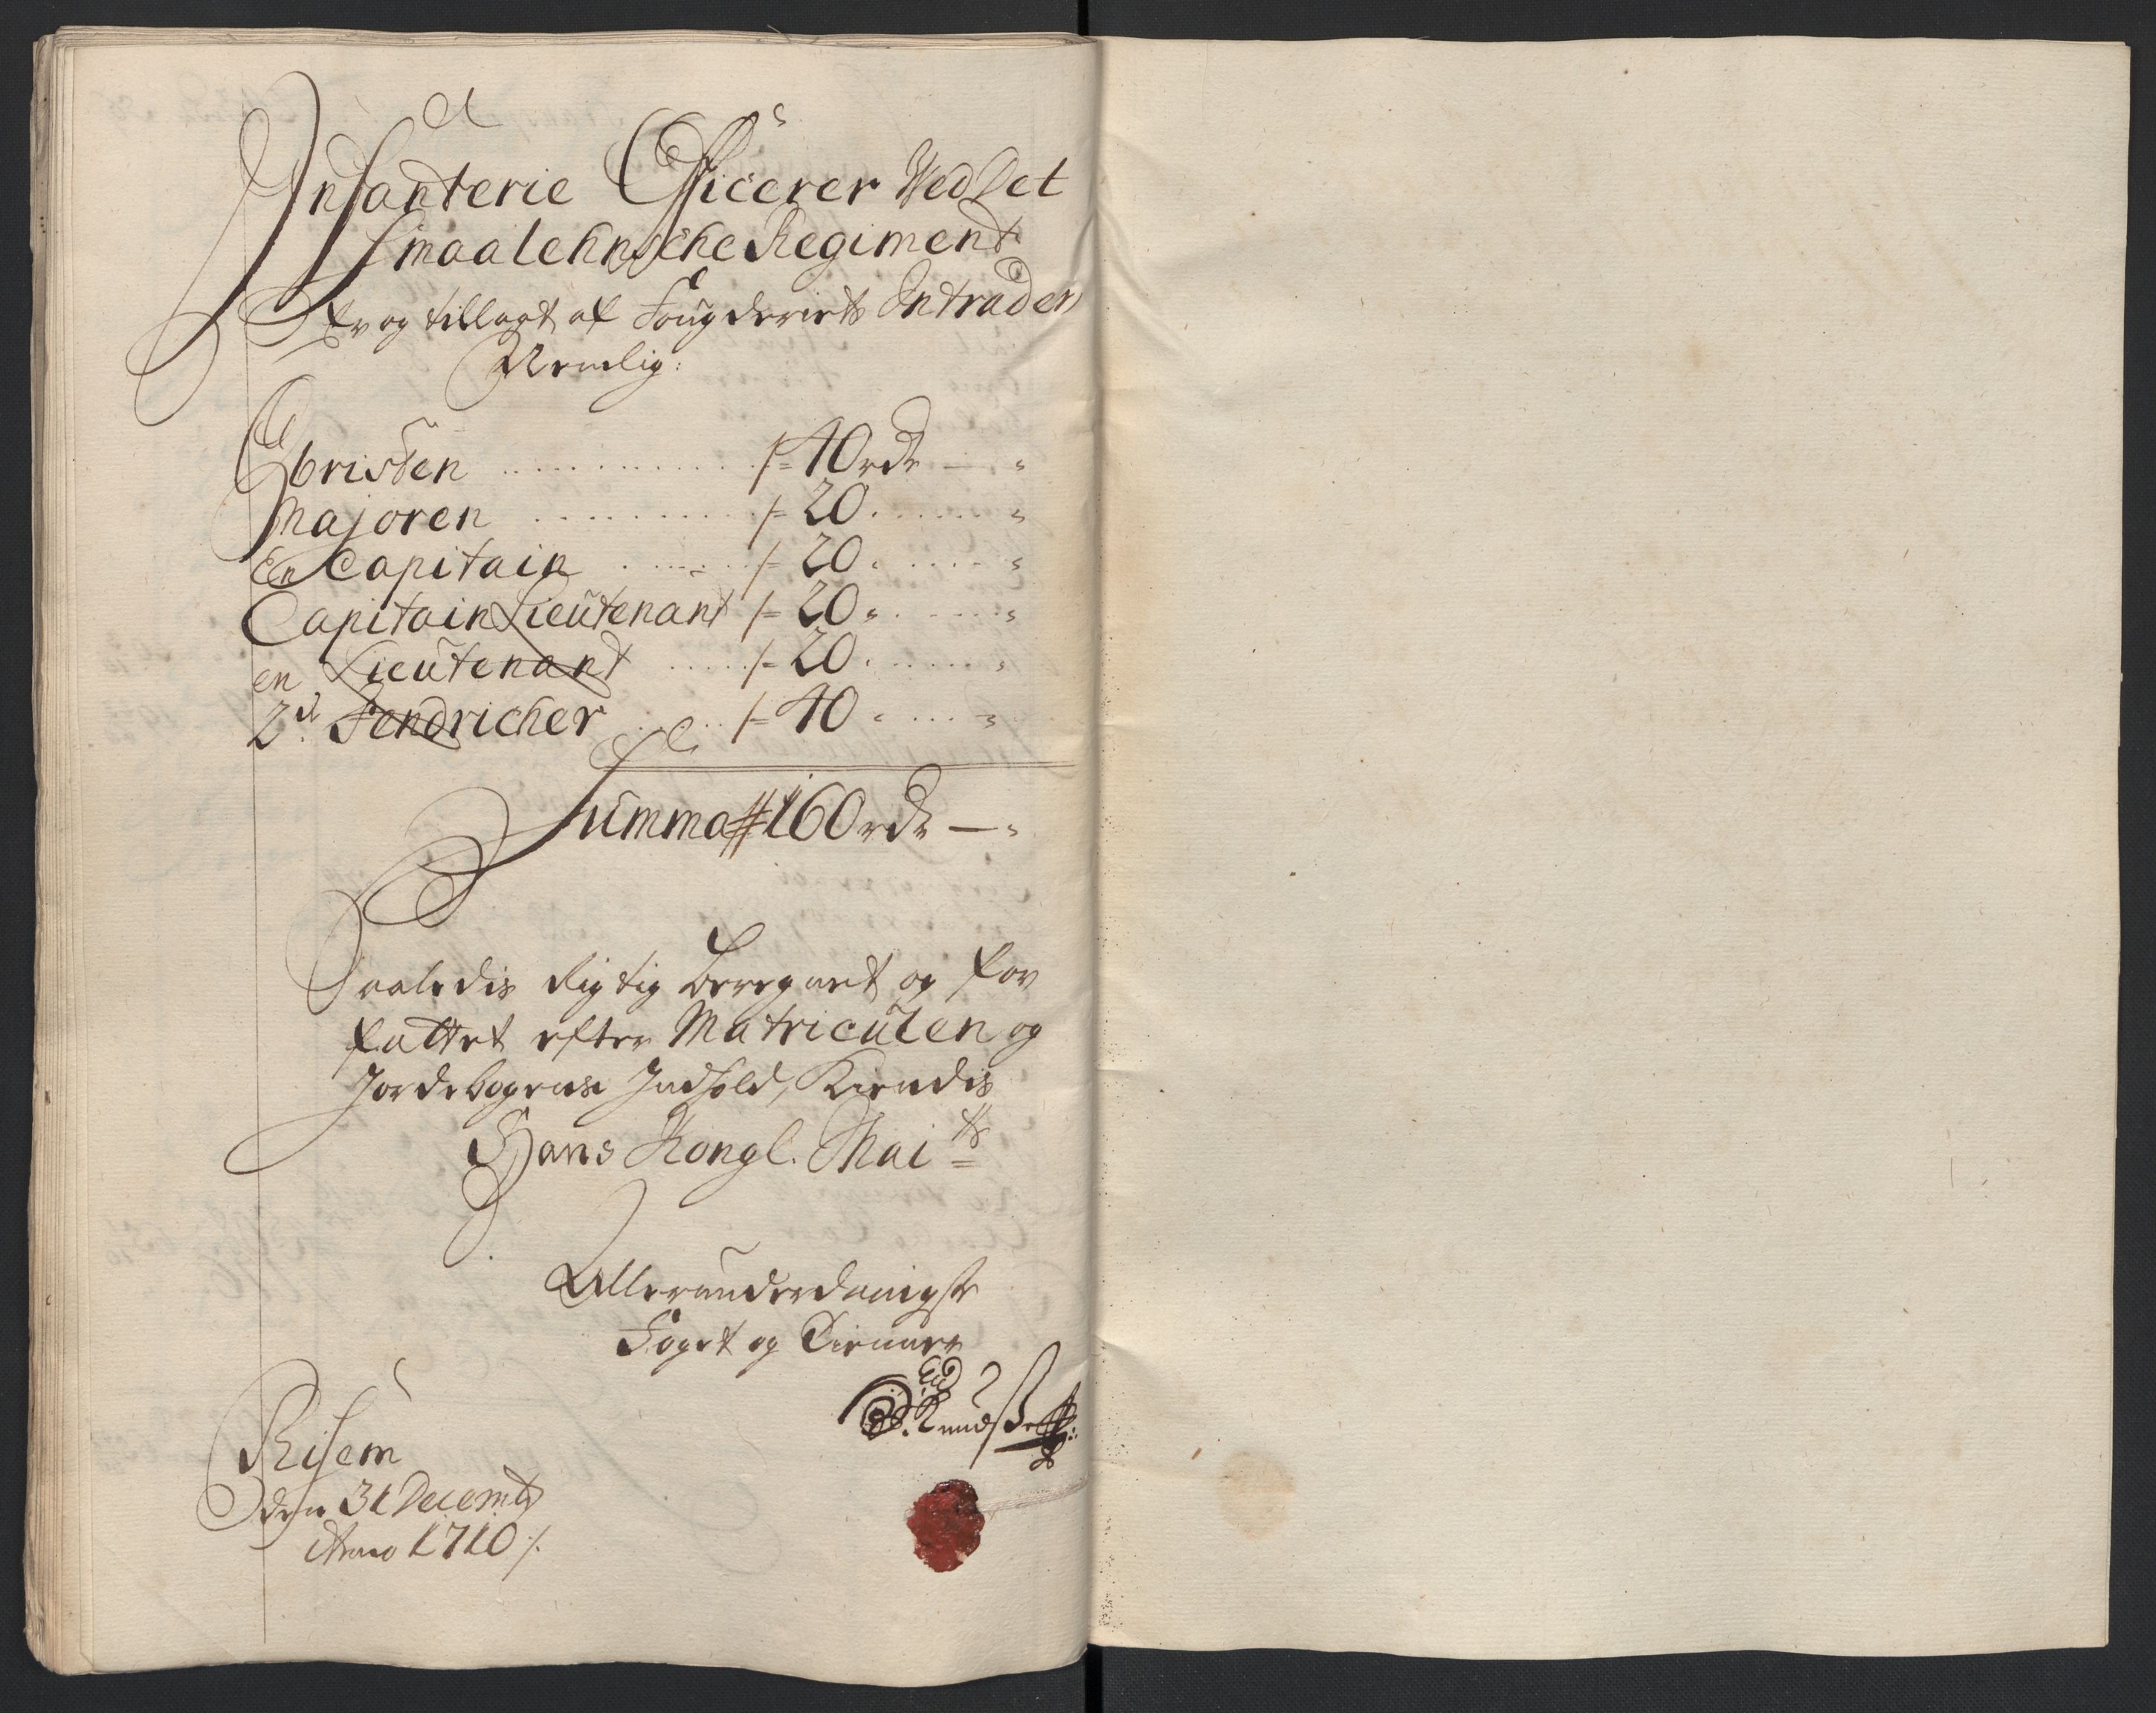 Infanterie Officerer Ved det
Smaalehnsche Regiment
Er og tillagt af Fougderiets Intrader
Nemlig:
Obristen ............ /= 40 rdr — "
Majoren .......... /= 20 . ...... "
En Capitain ...... /= 20 . ..... "
Capitain Lieutenant /= 20 " ..... "
en Lieutenant ..... /= 20 . ..... "
2de Fendricher .... /= 40 " .... "
Summa # 160 rdr — "
Saaledis Rigtig beregnet og for
fattet efter Matriculen og
Jordebogens Indhold, Kiendis
Hans Kongl. Maits
Allerunderdanigste
Foget og Tienner
Knudsen
Risem
den 31 Decembr
Anno 1710 /.